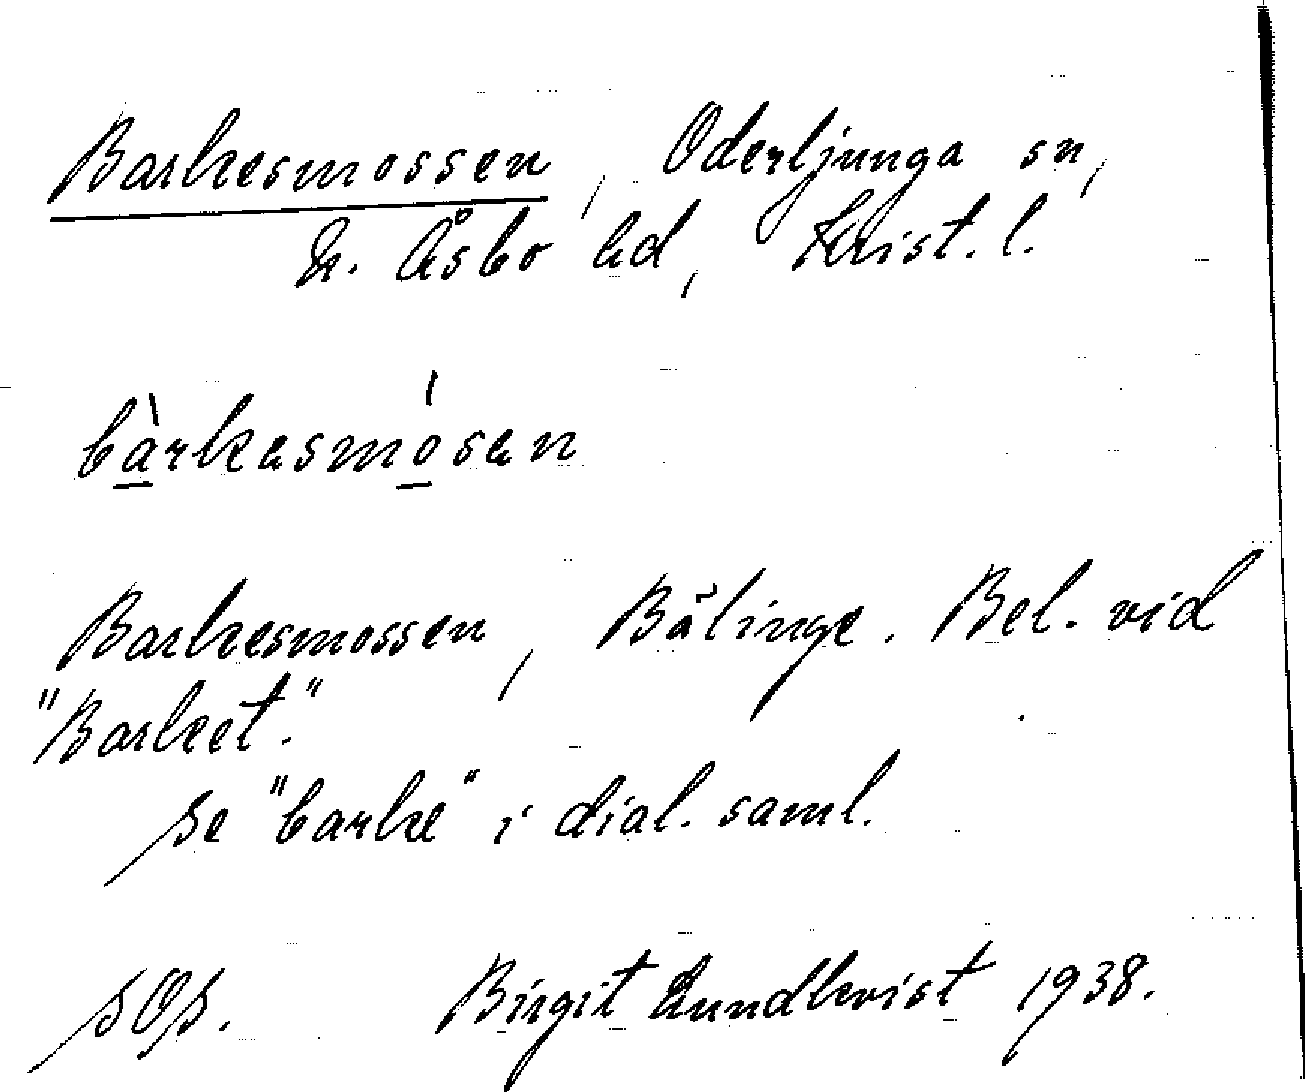 Barkesmossen, Oderljunga sn,
N. Åsbo hd, Krist. l.
bàrkasmósan
Barkesmossen, Bålinge. Bel. vid
"Barket."
se "barke" i dial. saml.
SOS. Birgit Lundkvist 1938.